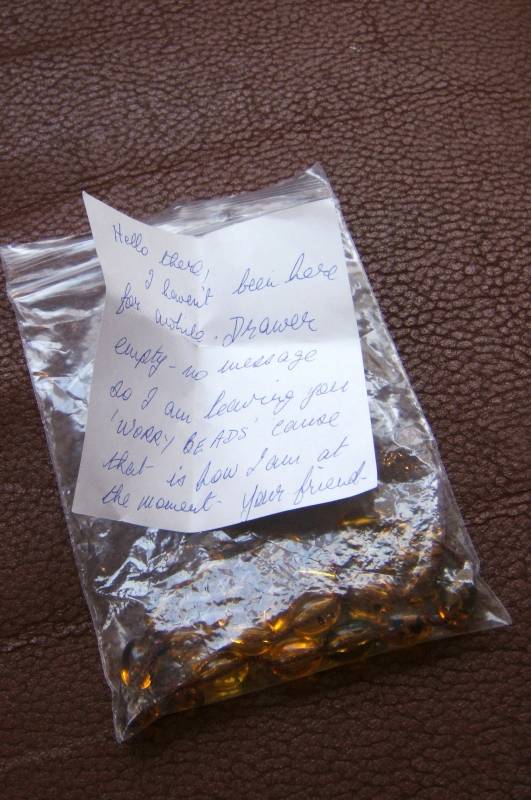 Hello there!
I haven't been here
for awhile. Drawer
empty - no message
So I am leaving you
'WORRY BEADS' cause
that is how I am at
the moment. Your friend.